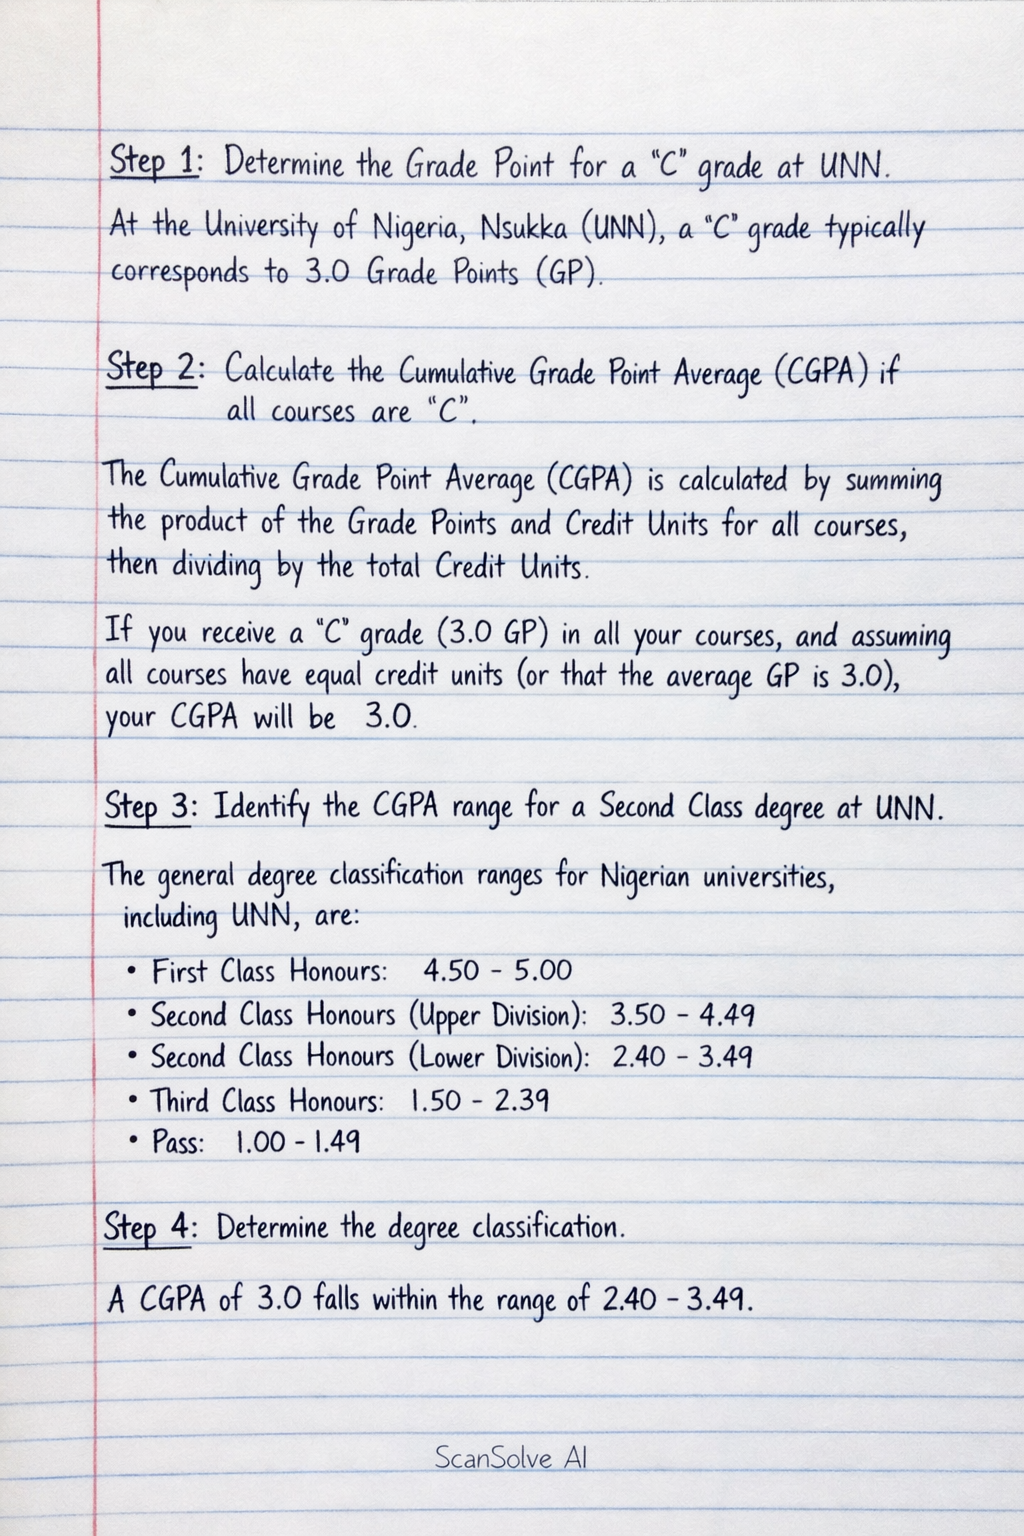 Step 1: Determine the Grade Point for a "C" grade at UNN.
At the University of Nigeria, Nsukka (UNN), a "C" grade typically
corresponds to 3.0 Grade Points (GP).
Step 2: Calculate the Cumulative Grade Point Average (CGPA) if
all courses are "C".
The Cumulative Grade Point Average (CGPA) is calculated by summing
the product of the Grade Points and Credit Units for all courses,
then dividing by the total Credit Units.
If you receive a "C" grade (3.0 GP) in all your courses, and assuming
all courses have equal credit units (or that the average GP is 3.0),
your CGPA will be 3.0.
Step 3: Identify the CGPA range for a Second Class degree at UNN.
The general degree classification ranges for Nigerian universities,
including UNN, are:
• First Class Honours: 4.50 - 5.00
• Second Class Honours (Upper Division): 3.50 - 4.49
• Second Class Honours (Lower Division): 2.40 - 3.49
• Third Class Honours: 1.50 - 2.39
• Pass: 1.00 - 1.49
Step 4: Determine the degree classification.
A CGPA of 3.0 falls within the range of 2.40 - 3.49.
ScanSolve AI